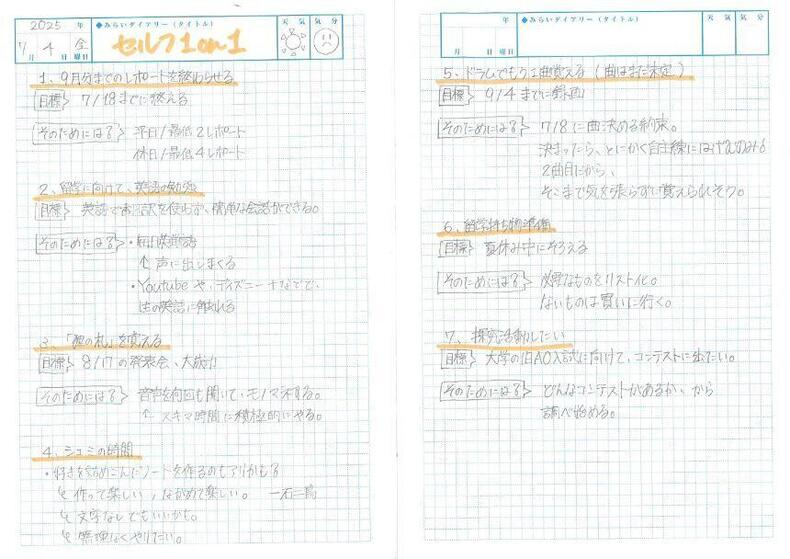 2025 年
7月 4日 金曜日
◆みらいダイアリー（タイトル）
セルフ1on1
天 気
気 分
1、9月分までのレポートを終わらせる
目標 7/18までに終える
そのためには？ 平日/最低2レポート
休日/最低4レポート
2、留学に向けて、英語の勉強
目標 英語で翻訳を使わず、簡単な会話ができる。
そのためには？ ・毎日英単語
↑ 声に出しまくる
・Youtubeや、ディズニー+などで、
生の英語に触れる
3、「狸の札」を覚える
目標 8/17の発表会、大成功
そのためには？ 音声を何回も聞いて、モノマネする。
↑ スキマ時間に積極的にやる。
4、シュミの時間
・好きを詰めこんだノートを作るのもアリかも？
↳ 作って楽しい、ながめて楽しい。 一石二鳥
↳ 文字なしでもいいかも。
↳ 無理なくやりたい。
年
月 日 曜日
◆みらいダイアリー（タイトル）
天 気
気 分
5、ドラムでもう1曲覚える（曲はまだ未定）
目標 9/4までに録画
そのためには？ 7/8に曲決める約束。
決まったら、とにかく自主練にはげむのみ
2曲目だから、
そこまで気を張らずに覚えられそう。
6、留学持ち物準備
目標 夏休み中にそろえる
そのためには？ 必要なものをリスト化。
ないものは買いに行く。
7、探究活動したい
目標 大学の旧AO入試に向けて、コンテストに出たい。
そのためには？ どんなコンテストがあるか、から
調べ始める。